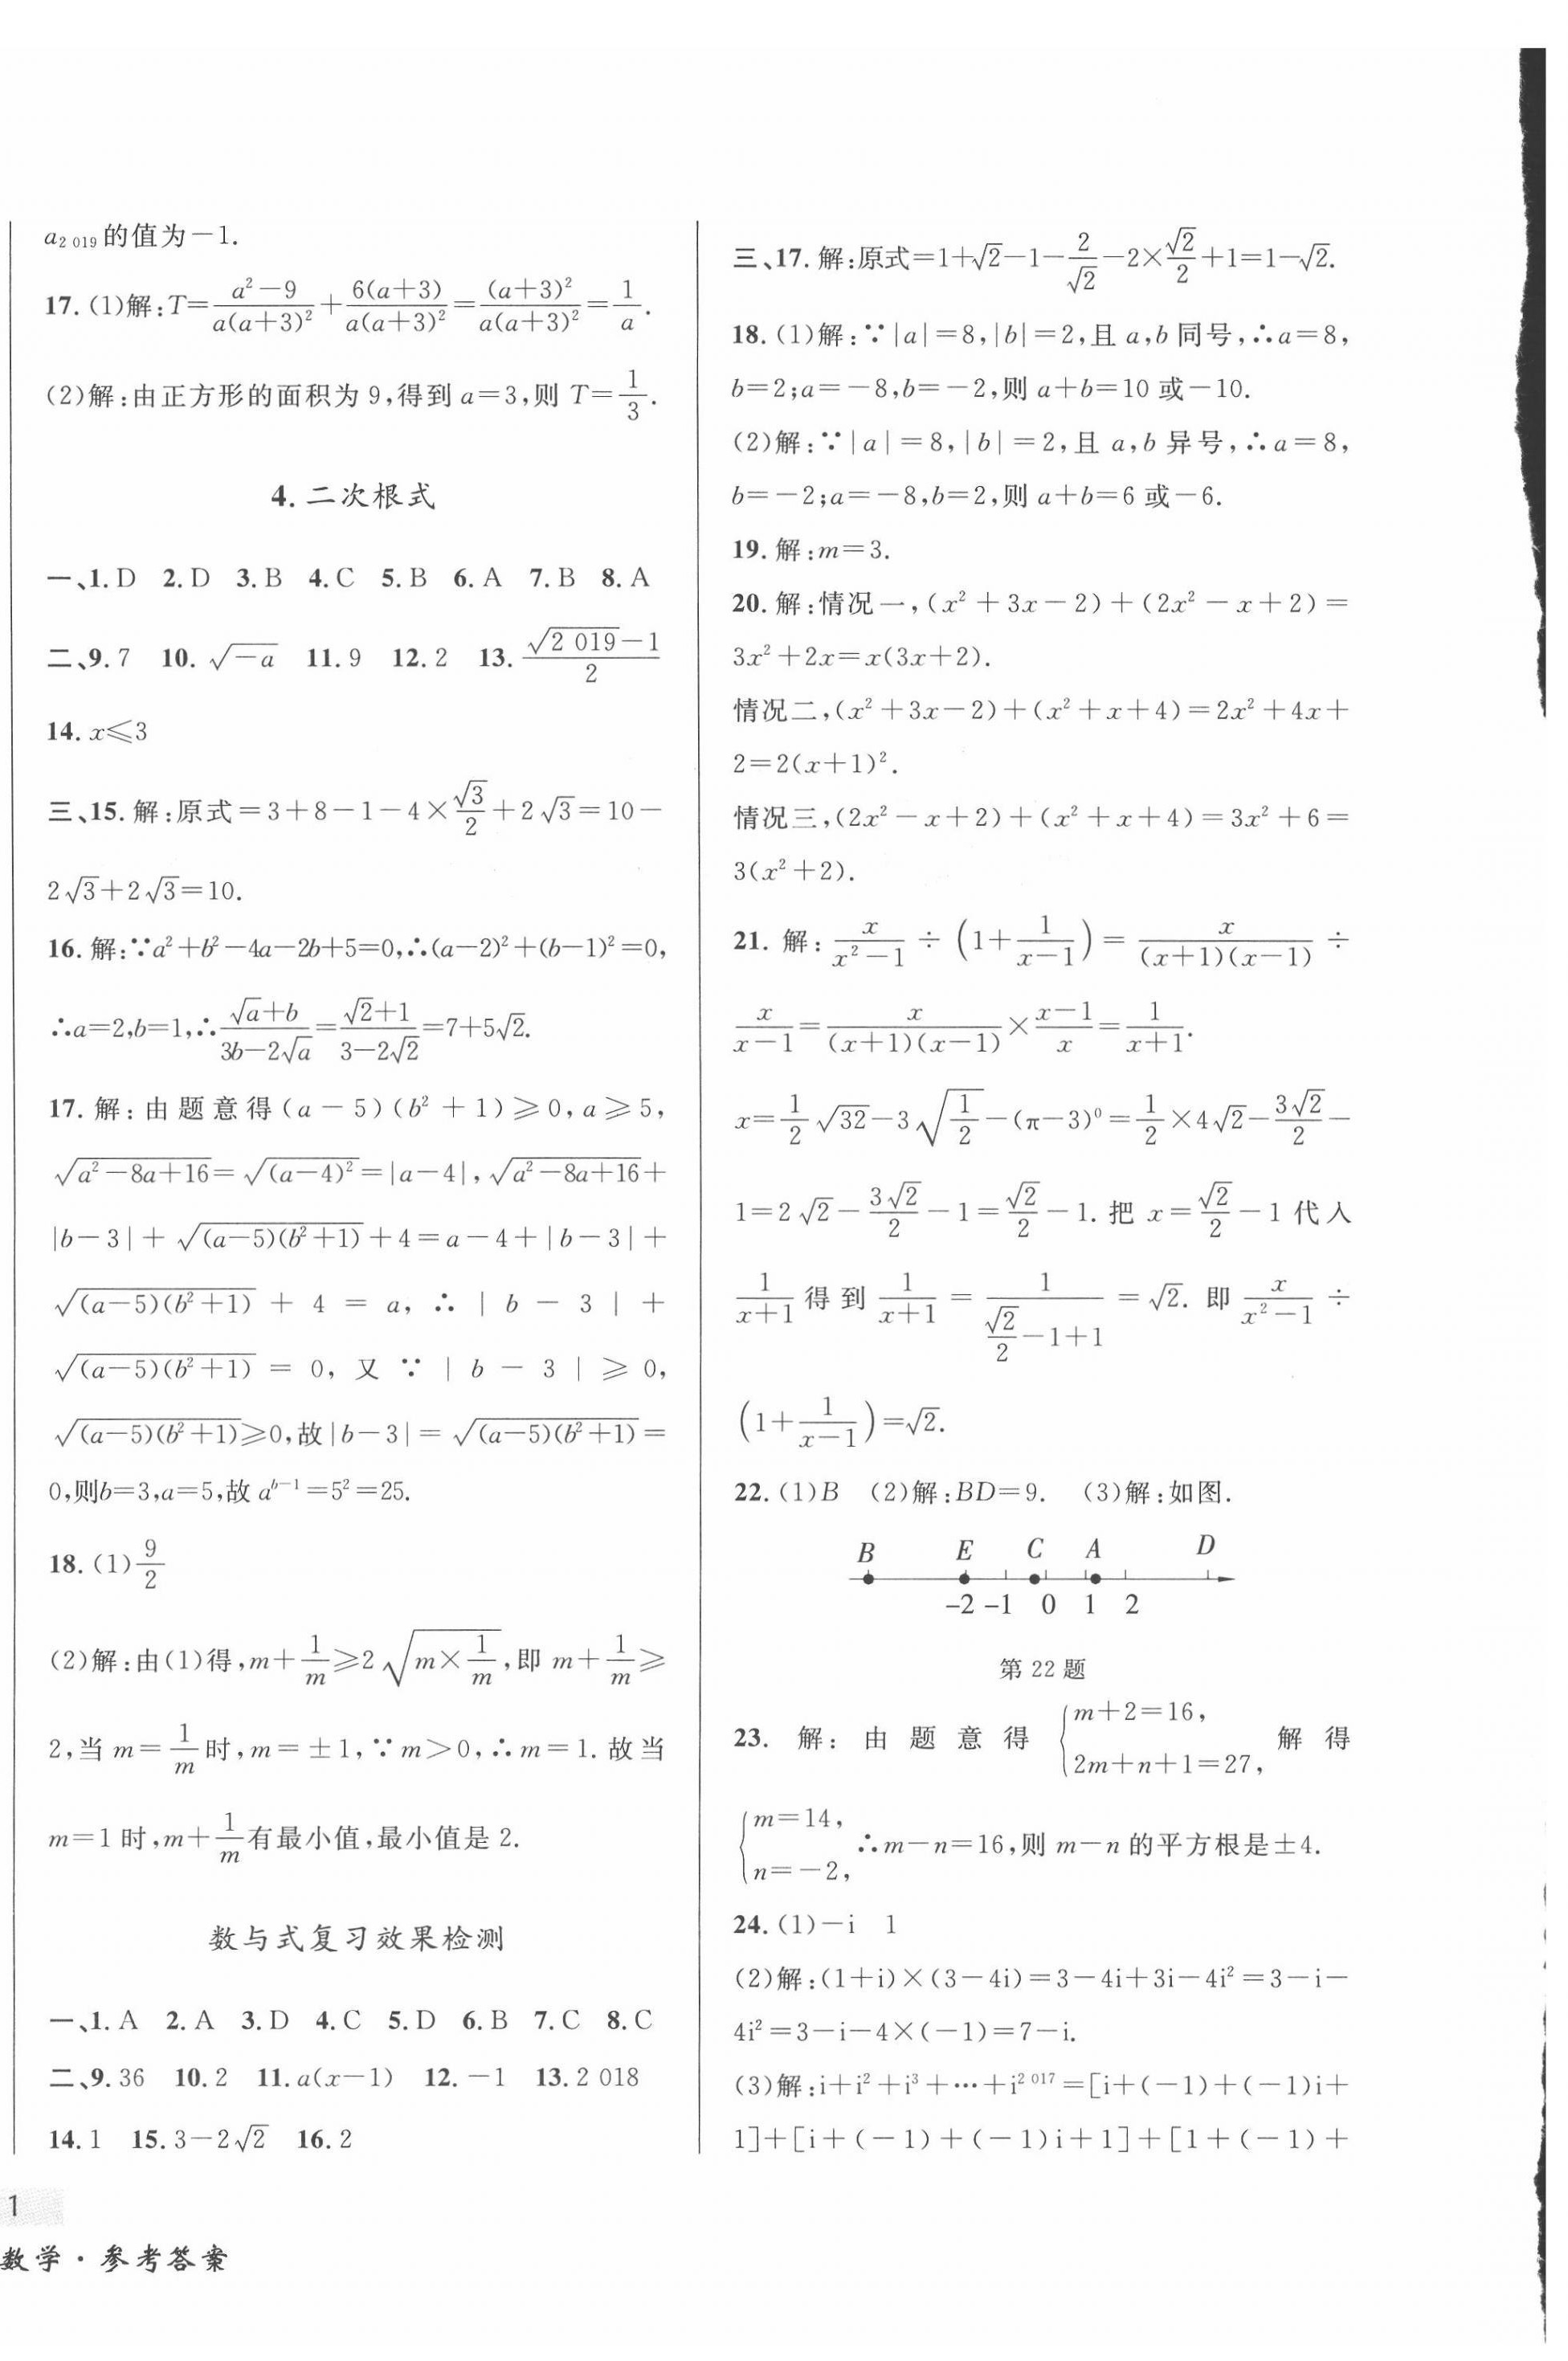 a₂ ₀₁₉的值为－1.
17. (1)解:T=\frac{a²－9}{a(a＋3)²}＋\frac{6(a＋3)}{a(a＋3)²}=\frac{(a＋3)²}{a(a＋3)²}=\frac{1}{a}.
(2)解:由正方形的面积为 9,得到 a=3,则 T=\frac{1}{3}.
4. 二次根式
一、1. D 2. D 3. B 4. C 5. B 6. A 7. B 8. A
二、9. 7 10. \sqrt{－a} 11. 9 12. 2 13. \frac{\sqrt{2 019}－1}{2}
14. x≤3
三、15. 解:原式=3＋8－1－4×\frac{\sqrt{3}}{2}＋2\sqrt{3}=10－
2\sqrt{3}＋2\sqrt{3}=10.
16. 解:∵a²＋b²－4a－2b＋5=0,∴(a－2)²＋(b－1)²=0,
∴a=2,b=1,∴\frac{\sqrt{a}＋b}{3b－2\sqrt{a}}=\frac{\sqrt{2}＋1}{3－2\sqrt{2}}=7＋5\sqrt{2}.
17. 解:由题意得(a－5)(b²＋1)≥0,a≥5,
\sqrt{a²－8a＋16}=\sqrt{(a－4)²}=|a－4|,\sqrt{a²－8a＋16}＋
|b－3|＋\sqrt{(a－5)(b²＋1)}＋4=a－4＋|b－3|＋
\sqrt{(a－5)(b²＋1)}＋4=a,∴|b－3|＋
\sqrt{(a－5)(b²＋1)}=0,又∵|b－3|≥0,
\sqrt{(a－5)(b²＋1)}≥0,故|b－3|=\sqrt{(a－5)(b²＋1)}=
0,则b=3,a=5,故 a^{b－1}=5²=25.
18. (1)\frac{9}{2}
(2)解:由(1)得,m＋\frac{1}{m}≥2\sqrt{m×\frac{1}{m}},即 m＋\frac{1}{m}≥
2,当 m=\frac{1}{m}时,m=±1,∵m>0,∴m=1. 故当
m=1 时,m＋\frac{1}{m}有最小值,最小值是 2.
数与式复习效果检测
一、1. A 2. A 3. D 4. C 5. D 6. B 7. C 8. C
二、9. 36 10. 2 11. a(x－1) 12. －1 13. 2 018
14. 1 15. 3－2\sqrt{2} 16. 2
三、17. 解:原式=1＋\sqrt{2}－1－\frac{2}{\sqrt{2}}－2×\frac{\sqrt{2}}{2}＋1=1－\sqrt{2}.
18. (1)解:∵|a|=8,|b|=2,且 a,b 同号,∴a=8,
b=2;a=－8,b=－2,则 a＋b=10 或－10.
(2)解:∵|a|=8,|b|=2,且 a,b 异号,∴a=8,
b=－2;a=－8,b=2,则 a＋b=6 或－6.
19. 解:m=3.
20. 解:情况一,(x²＋3x－2)＋(2x²－x＋2)=
3x²＋2x=x(3x＋2).
情况二,(x²＋3x－2)＋(x²＋x＋4)=2x²＋4x＋
2=2(x＋1)².
情况三,(2x²－x＋2)＋(x²＋x＋4)=3x²＋6=
3(x²＋2).
21. 解:\frac{x}{x²－1}÷(1＋\frac{1}{x－1})=\frac{x}{(x＋1)(x－1)}÷
\frac{x}{x－1}=\frac{x}{(x＋1)(x－1)}×\frac{x－1}{x}=\frac{1}{x＋1}.
x=\frac{1}{2}\sqrt{32}－3\sqrt{\frac{1}{2}}－(π－3)⁰=\frac{1}{2}×4\sqrt{2}－\frac{3\sqrt{2}}{2}－
1=2\sqrt{2}－\frac{3\sqrt{2}}{2}－1=\frac{\sqrt{2}}{2}－1. 把 x=\frac{\sqrt{2}}{2}－1 代入
\frac{1}{x＋1}得到\frac{1}{x＋1}=\frac{1}{\frac{\sqrt{2}}{2}－1＋1}=\sqrt{2}. 即\frac{x}{x²－1}÷
(1＋\frac{1}{x－1})=\sqrt{2}.
22. (1)B (2)解:BD=9. (3)解:如图.
B E C A D
－2 －1 0 1 2
第 22 题
23. 解:由题意得{m＋2=16, 2m＋n＋1=27, 解得
{m=14, n=－2, ∴m－n=16,则 m－n 的平方根是±4.
24. (1)－i 1
(2)解:(1＋i)×(3－4i)=3－4i＋3i－4i²=3－i－
4i²=3－i－4×(－1)=7－i.
(3)解:i＋i²＋i³＋…＋i^{2 017}=[i＋(－1)＋(－1)i＋
1]＋[i＋(－1)＋(－1)i＋1]＋[1＋(－1)＋
1
数学·参考答案